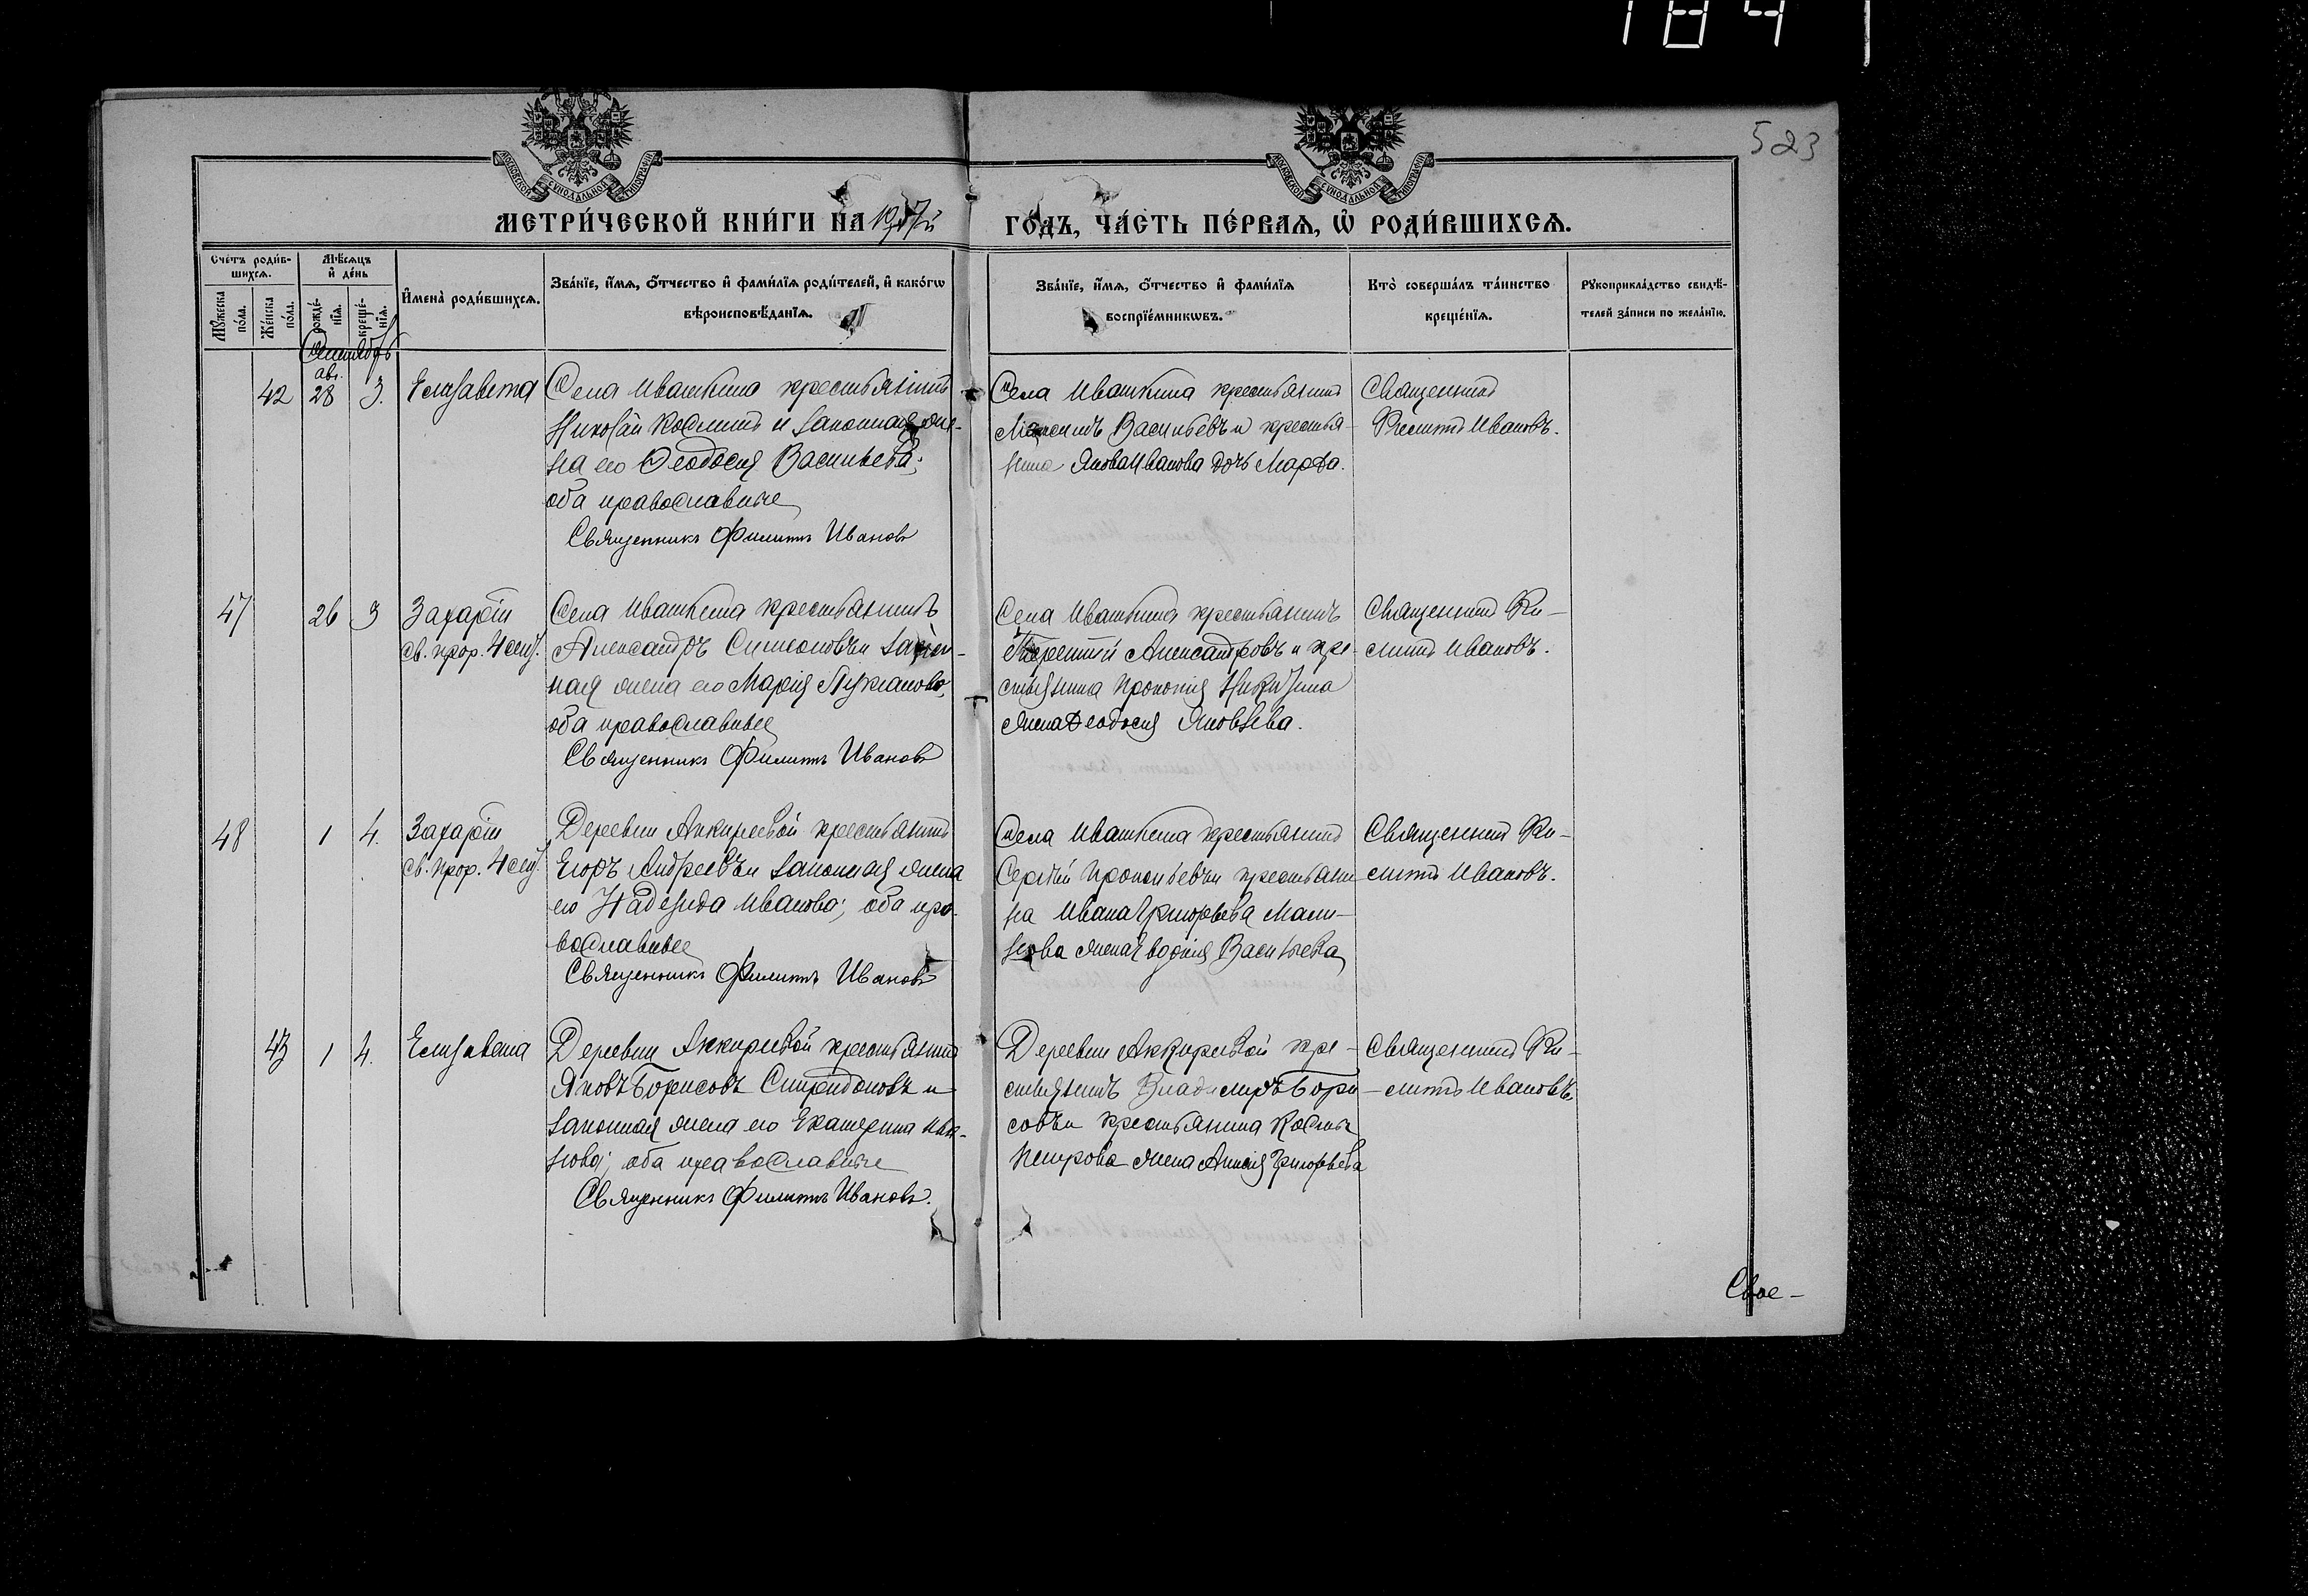 184
523
МОСКОВСКОЙ СѴНОДАЛЬНОЙ ТИПОГРАФІИ
МОСКОВСКОЙ СѴНОДАЛЬНОЙ ТИПОГРАФІИ
МЕТРИ́ЧЕСКОЙ КНИ́ГИ НА 1907й ГО́ДЪ, ЧА́СТЬ ПЕ́РВАѦ, Ѡ҆ РОДИ́ВШИХСѦ.
Сче́тъ роди́в-
шихсѧ.
Мꙋ́жеска
по́ла.
Же́нска
по́ла.
Мѣ́сѧцъ
и҆ де́нь
рожде́-
нїѧ.
креще́-
нїѧ.
И҆мена̀ роди́вшихсѧ.
Зва́нїе, и҆́мѧ, ѻ҆́тчество и҆ фами́лїѧ роди́телей, и҆ како́гѡ
вѣроисповѣ́данїѧ.
Зва́нїе, и҆́мѧ, ѻ҆́тчество и҆ фами́лїѧ
воспрїе́мникѡвъ.
Кто̀ соверша́лъ та́инство
креще́нїѧ.
Рꙋкоприкла́дство свидѣ́-
телей за́писи по жела́нїю.
Сентябрь
42
авг.
28
3.
Елизавета
Села Ивашкина крестьянинъ
Николай Косминъ и законная же-
на его Ѳеодосія Васильева;
оба православные
Священникъ Филиппъ Ивановъ
Села Ивашкина крестьянинъ
Василь​евъ и крестья-
нина Якова Иванова дочь Марѳа.
Священникъ
Филиппъ Ивановъ.
47
26
3
Захарій
св. прор. 4 сент.
Села Ивашкина крестьянинъ
Александръ Симеоновъ и закон-
ная жена его Марія Лукіанова;
оба православные
Священникъ Филиппъ Ивановъ
Села Ивашкина крестьянинъ
Терентій Александровъ и кре-
стьянина Прокопія Никитина
жена Ѳеодосія Яковлева.
Священникъ Фи-
липпъ Ивановъ.
48
1
4.
Захарій
св. прор. 4 сент.
Деревни Аккиреевой крестьянинъ
Егоръ Андреевъ и законная жена
его Надежда Иванова; оба пра-
вославные
Священникъ Филиппъ Ивановъ
Села Ивашкина крестьянинъ
Сергѣй Прокопьевъ и крестьяни-
на Ивана Григорьева
жена Евдокія Васильева
Священникъ Фи-
липпъ Ивановъ.
43
1
4.
Елизавета
Деревни Аккиреевой крестьянинъ
Яковъ Борисовъ Спиридоновъ и
законная жена его Екатерина Ива-
нова; оба православные
Священникъ Филиппъ Ивановъ.
Деревни Аккиреевой кре-
стьянинъ Владимиръ Бори-
совъ и крестьянина Космы
Петрова жена Анисія Григорьева
Священникъ Фи-
липпъ Ивановъ.
Свое-